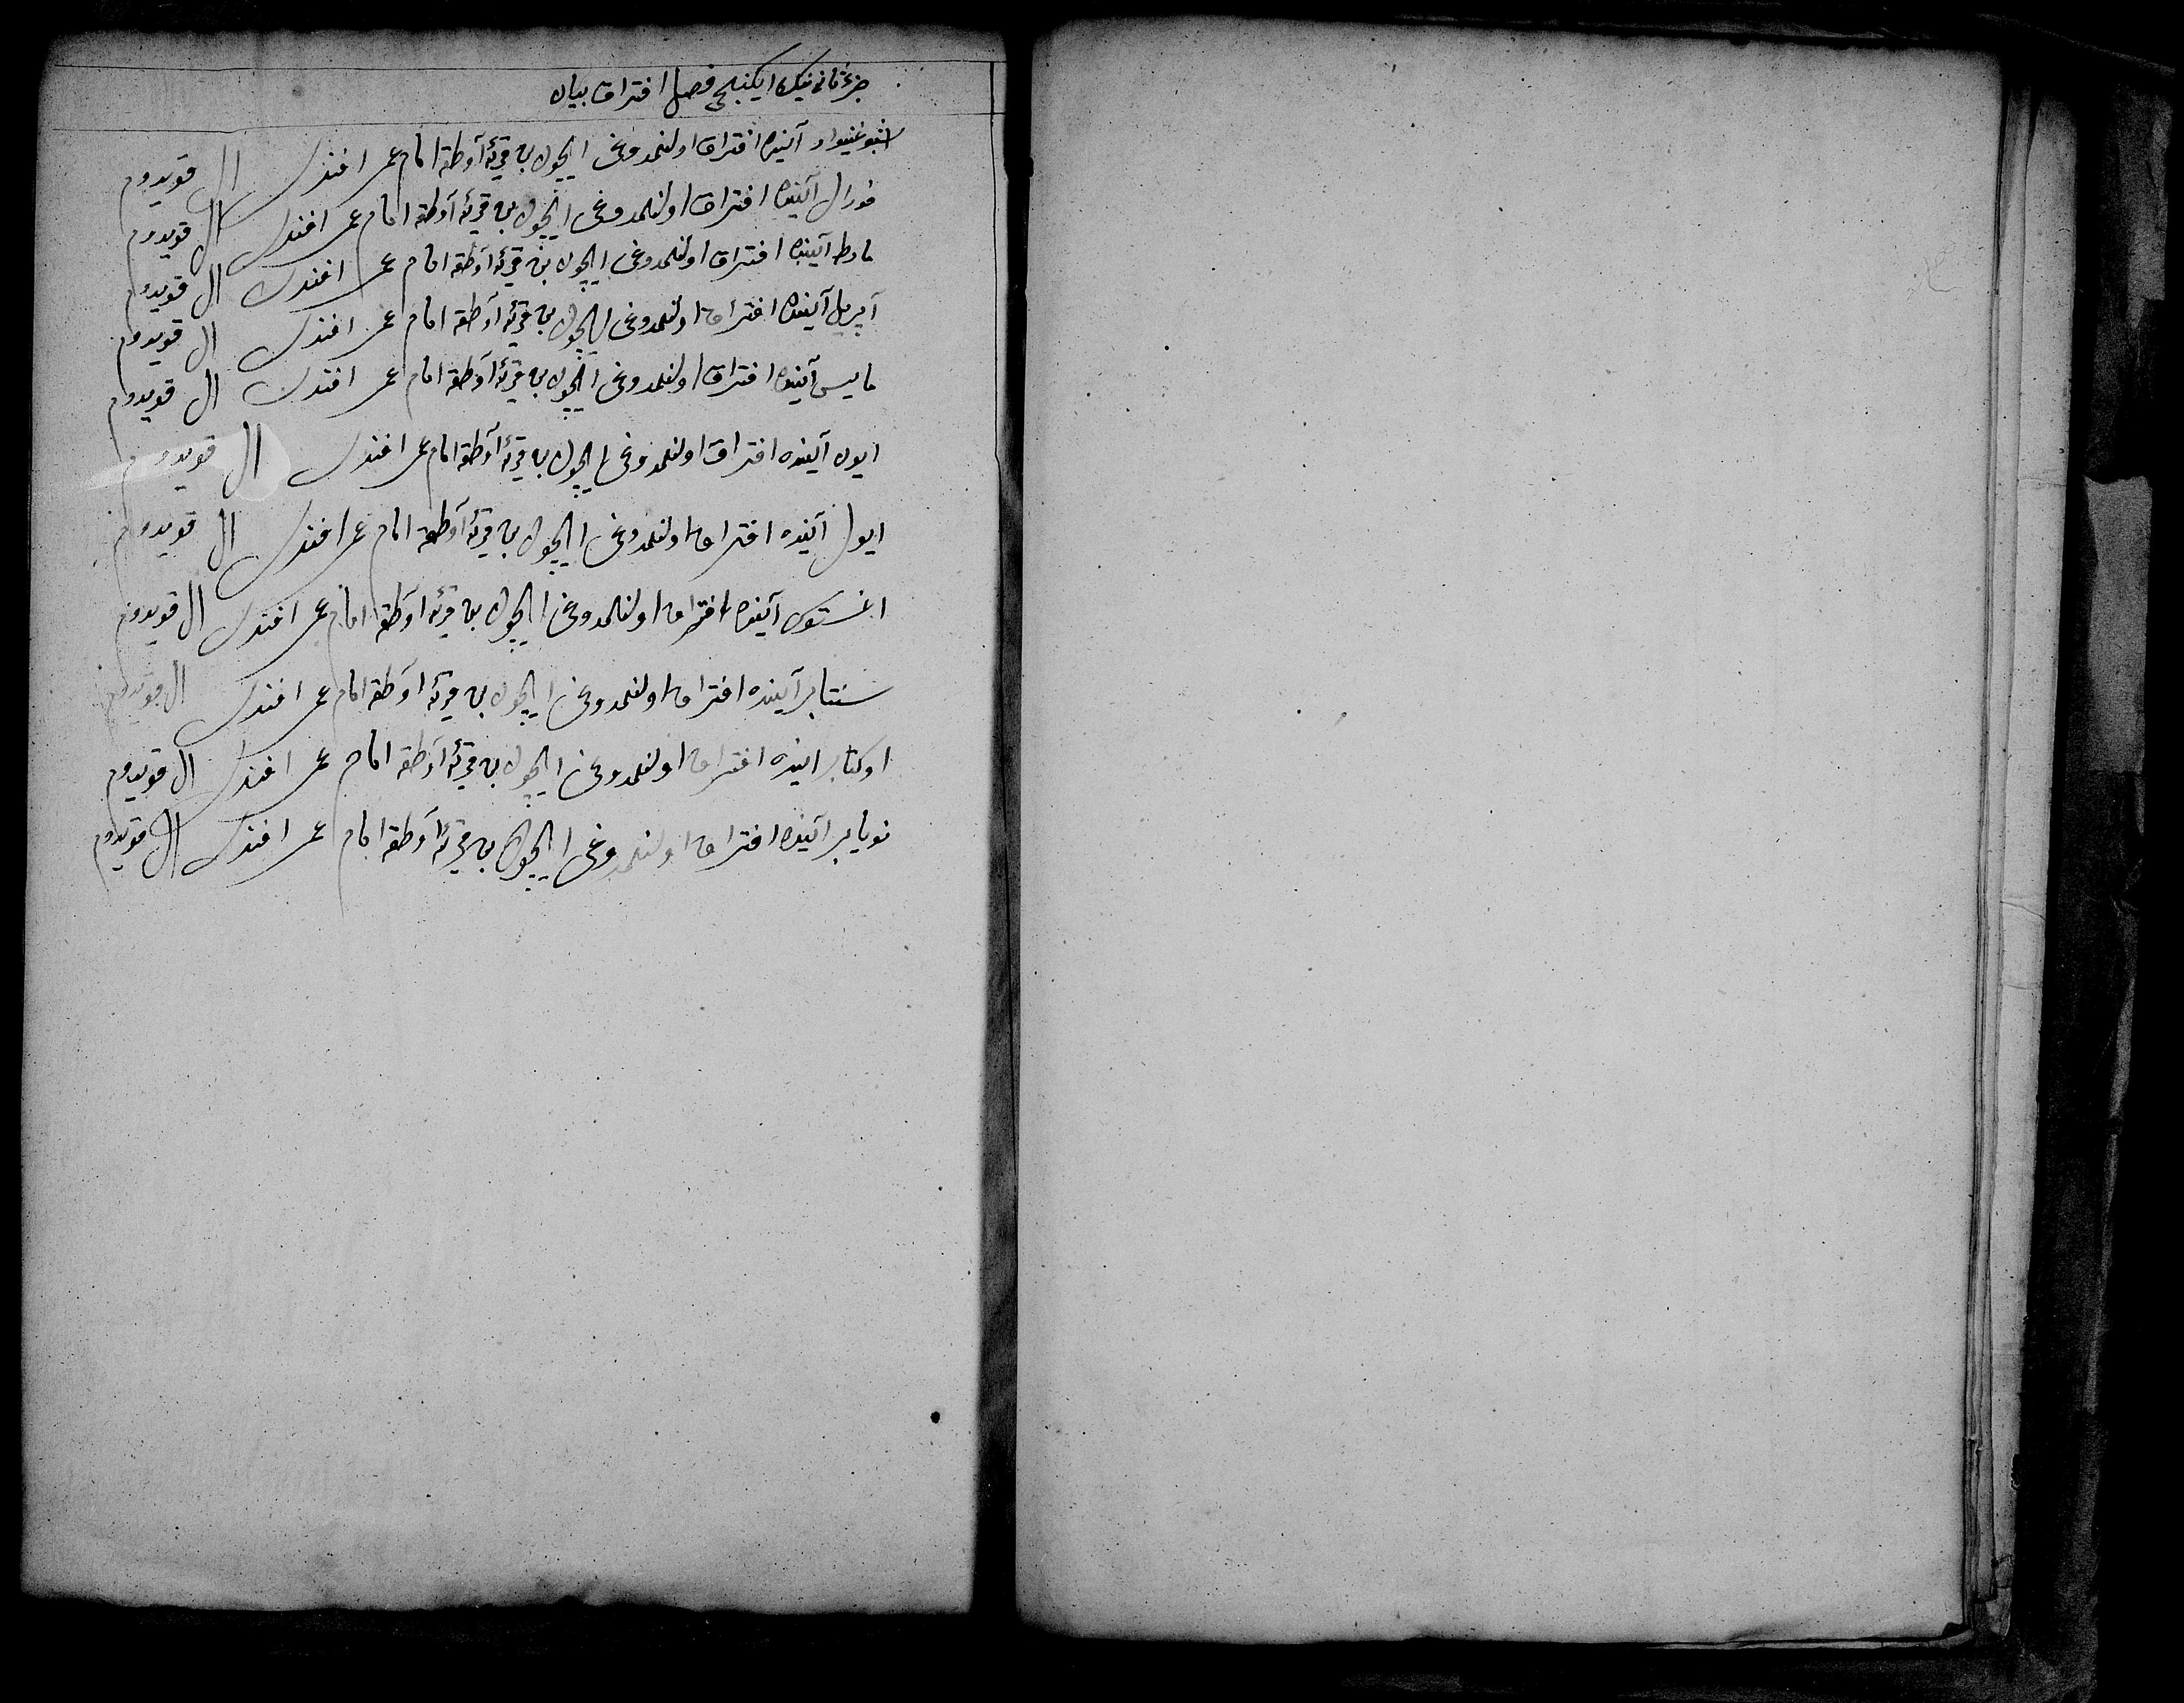 جزء ثانی نیك ایكنجی فصل افتراق بیان
اشبو غینوار آینده افتراق اولنلمدوغی ایچون بن قریه آوطقه امام عمر افندی ال قویدوم
فورال آینده افتراق اولنلمدوغی ایچون بن قریه آوطقه امام عمر افندی ال قویدوم
مارط آینده افتراق اولنلمدوغی ایچون بن قریه آوطقه امام عمر افندی ال قویدوم
آپریل آینده افتراق اولنلمدوغی ایچون بن قریه آوطقه امام عمر افندی ال قویدوم
مایس آینده افتراق اولنلمدوغی ایچون بن قریه آوطقه امام عمر افندی ال قویدوم
ایون آینده افتراق اولنلمدوغی ایچون بن قریه آوطقه امام عمر افندی ال قویدوم
ایول آینده افتراق اولنلمدوغی ایچون بن قریه آوطقه امام عمر افندی ال قویدوم
اغستوس آینده افتراق اولنلمدوغی ایچون بن قریه آوطقه امام عمر افندی ال قویدوم
سنتابر آینده افتراق اولنلمدوغی ایچون بن قریه آوطقه امام عمر افندی ال قویدوم
اوكتابر اینده افتراق اولنلمدوغی ایچون بن قریه آوطقه امام عمر افندی ال قویدوم
نویابر آینده افتراق اولنلمدوغی ایچون بن قریه آوطقه امام عمر افندی ال قویدوم